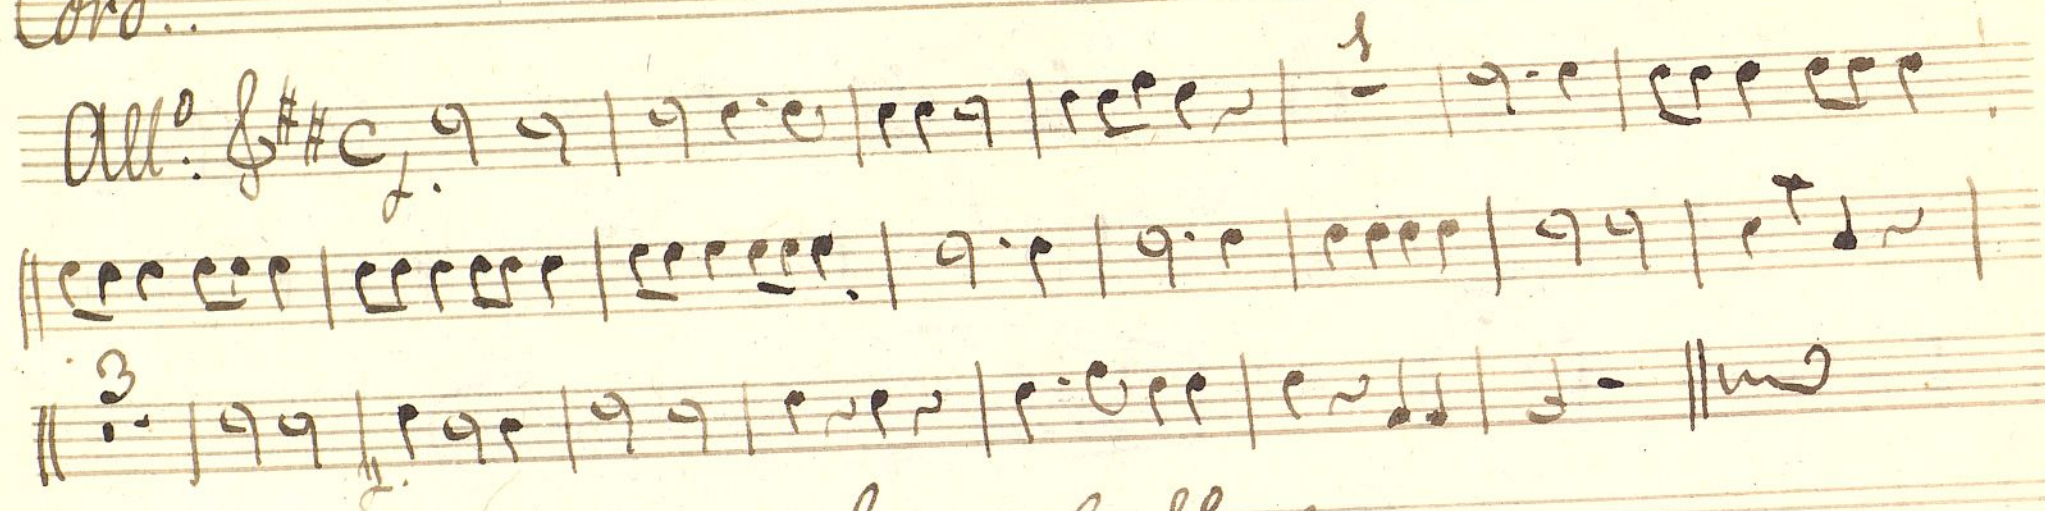 Coro..
All.o f.
1
3
f.